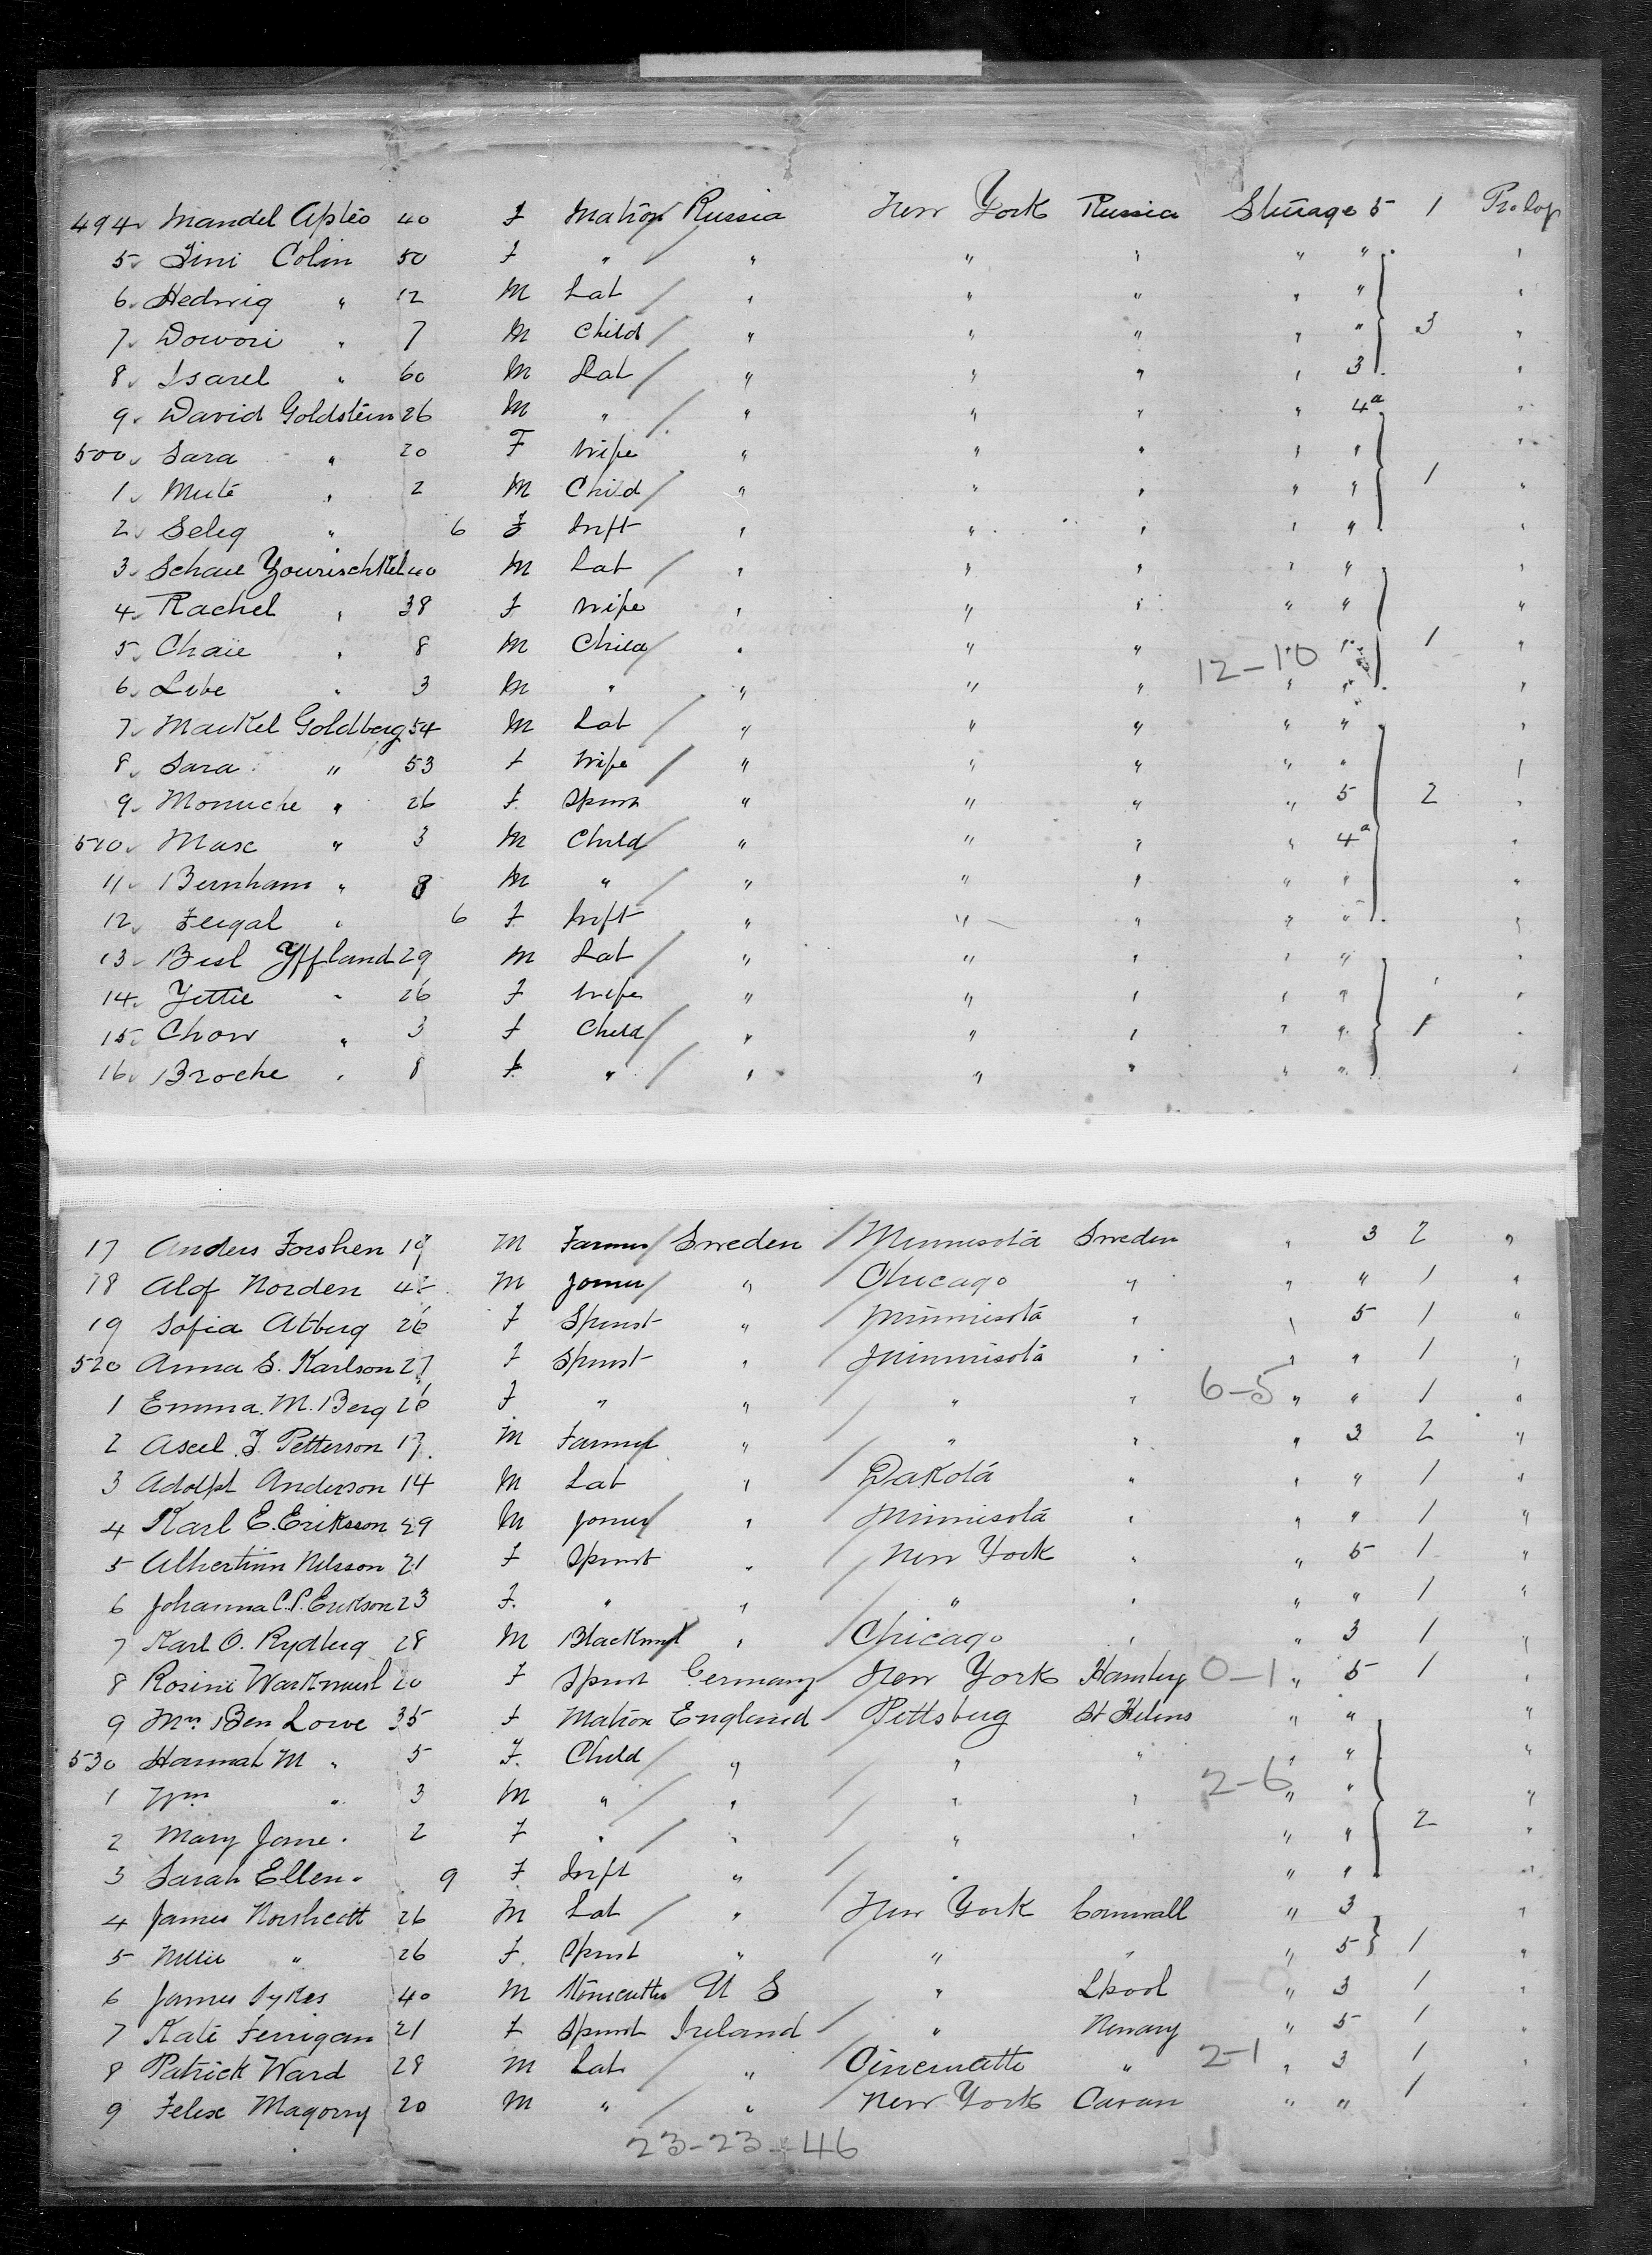 494 Mandel Apteo 40 F Matron Russia New York Russia Steerage 5 1 Pr. Lop
5 Jini Colin 50 F " " " " " "
6 Hedwig " 12 M Lab " " " " " "
7 Dowori " 7 M Child " " " " " 3 "
8 Isarel " 60 M Lab " " " " 3 "
9 David Goldstein 26 M " " " " " 4a "
500 Sara " 20 F Wife " " " " " "
1 Mute " 2 M Child " " " " " 1 "
2 Seleg " 6 F Inft " " " " " "
3 Schaie Yourischkel 40 M Lab " " " " " "
4 Rachel " 38 F Wife " " " " " "
5 Chaie " 8 M Child " " " 12-10 " 1 "
6 Libe " 3 M " " " " " " "
7 Markel Goldberg 54 M Lab " " " " " "
8 Sara " 53 F Wife " " " " " "
9 Monuche " 26 F Spinst " " " " 5 2 "
510 Max " 3 M Child " " " " 4a "
11 Bernham " 8 M " " " " " " "
12 Feigal " 6 F Inft " " " " " "
13 Besl Yffland 29 M Lab " " " " " "
14 Yettie " 26 F Wife " " " " " "
15 Chow " 3 F Child " " " " " 1 "
16 Broche " 8 F " " " " " " "
17 Anders Forshen 19 M Farmer Sweden Minnesota Sweden " 3 2 "
18 Alof Norden 42 M Joiner " Chicago " " " 1 "
19 Sofia Atberg 26 F Spinst " Minnisota " " 5 1 "
520 Anna S. Karlson 27 F Spinst " Minnisota " " " 1 "
1 Emma. M. Berg 26 F " " " " 6-5 " " 1 "
2 Axel J. Petterson 17 M Farmer " " " " 3 2 "
3 Adolph Anderson 14 M Lab " Dakota " " " 1 "
4 Karl E. Eriksson 29 M Joiner " Minnisota " " " 1 "
5 Albertinn Nilsson 21 F Spinst " New York " " 5 1 "
6 Johanna C.P. Erikson 23 F. " " " " " " 1 "
7 Karl O. Rydberg 28 M Blacksmt " Chicago " " 3 1 "
8 Rosine Warkmeist 20 F Spinst Germany New York Hamburg 0-1 " 5 1 "
9 Mrs Ben Lowe 35 F Matron England Pittsburg St Helens " " "
530 Hannah M " 5 F. Child " " " " " "
1 Wm " 3 M " " " " 2-6 " " "
2 Mary Jane " 2 F " " " " " " 2 "
3 Sarah Ellen " 9 F Inft " " " " "
4 James Norshcott 26 M Lab " New York Cornwall " 3 "
5 Nellie " 26 F. Spinst " " " " 5 1 "
6 James Sykes 40 M Stonecutter U S " Lpool 1-0 " 3 1 "
7 Kate Ferrigan 21 F Spinst Ireland " Newary " 5 1 "
8 Patrick Ward 28 M Lab " Cincinatti " 2-1 " 3 1 "
9 Felix Magorry 20 M " " New York Cavan " " 1 "
23-23-46